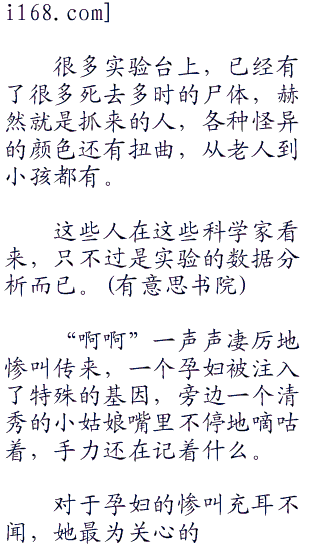 i168.com]
很多实验台上，已经有
了很多死去多时的尸体，赫
然就是抓来的人，各种怪异
的颜色还有扭曲，从老人到
小孩都有。
这些人在这些科学家看
来，只不过是实验的数据分
析而已。(有意思书院)
“啊啊”一声声凄厉地
惨叫传来，一个孕妇被注入
了特殊的基因，旁边一个清
秀的小姑娘嘴里不停地嘀咕
着，手力还在记着什么。
对于孕妇的惨叫充耳不
闻，她最为关心的